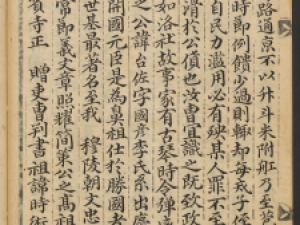 路通京不以升斗米附舡乃至
時節例饋少過則輙却每戒子侄
自民力濫用必有殃某人罪不至
滑於公債也汝曹宜識之既致政
如洛社故事家有古琴時令彈
之公諱台佐字國彥李氏系出慶
開國元臣是為鼻祖仕於勝國者
世基最著名至我 穆陵朝文忠
常節義文章昭耀簡策公之高祖
賓寺正 贈吏曹判書祖諱時術